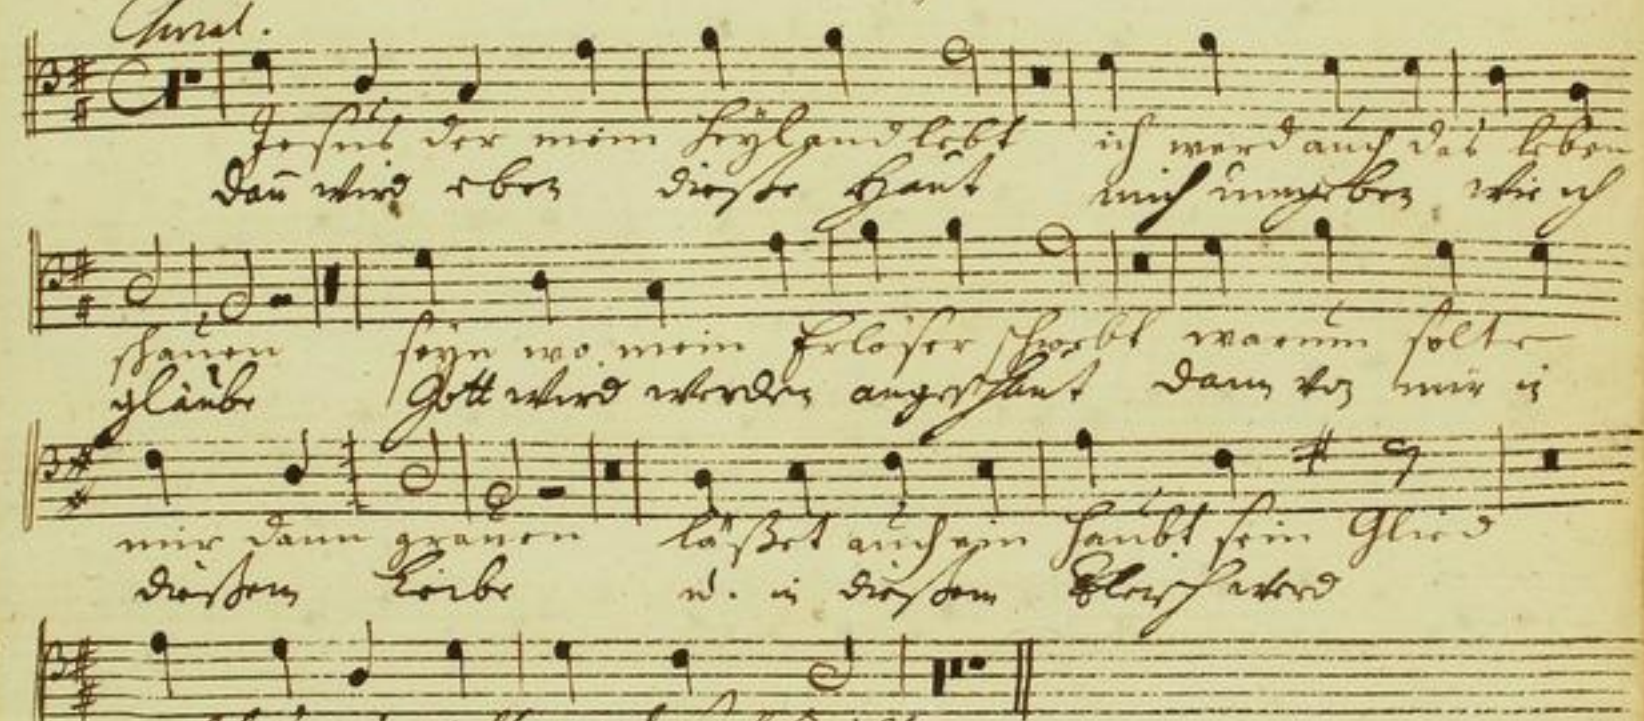 Choral.
Jesus der mein Heyland lebt ich werd auch das leben
dañ wird eben dieße Haut mich umgeben wie ich
schauen seyn wo mein Erlöser schwebt warum solte
gläube Gott wird werden angeschaut dann von mir in
mir dann grauen läßet auch ein Haubt sein Glied
dießem Leibe u. in dießem Fleisch werd